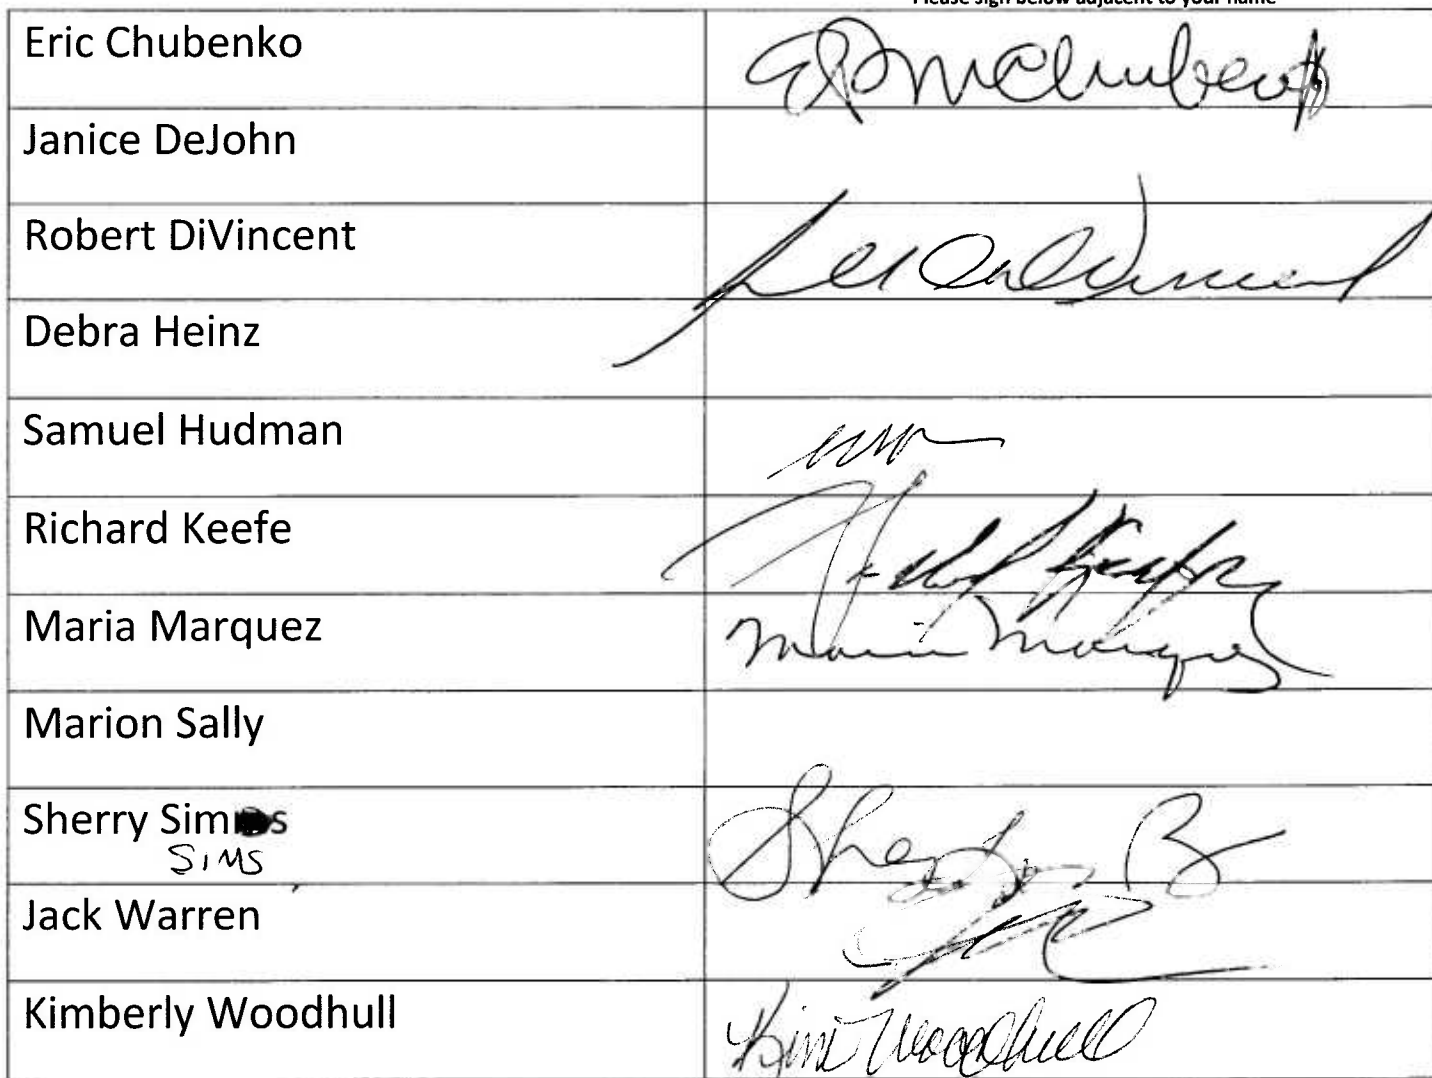 Please sign below adjacent to your name
Eric Chubenko
Janice DeJohn
Robert DiVincent
Debra Heinz
Samuel Hudman
Richard Keefe
Maria Marquez Maria Marquez
Marion Sally
Sherry Sim s
SIMS
Jack Warren
Kimberly Woodhull Kim Woodhull